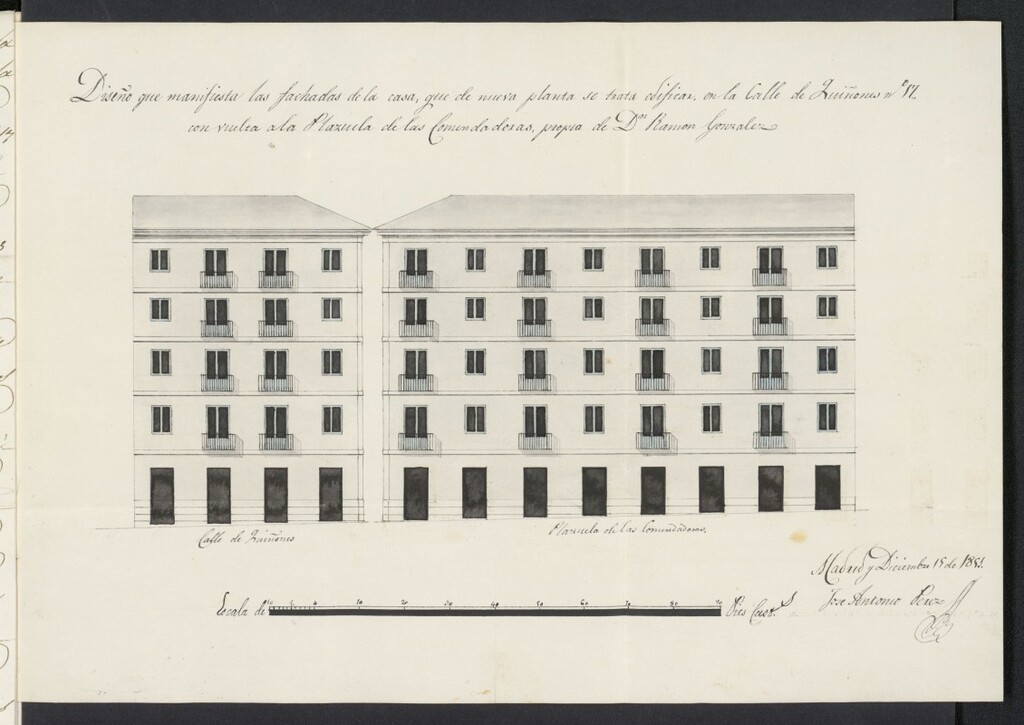 Diseño que manifiesta las fachadas de la casa, que de nueva planta se trata edificar, en la Calle de Quiñones nº 17.
con vuelta a la Plazuela de las Comendadoras, propia de Dⁿ Ramon Gonzalez
Calle de Quiñones
Plazuela de las Comendadoras.
Madrid y Diciembre 15 de 1851.
Jose Antonio Perez
Escala de 10 10 20 30 40 50 60 70 80 90 Pies Cast.s